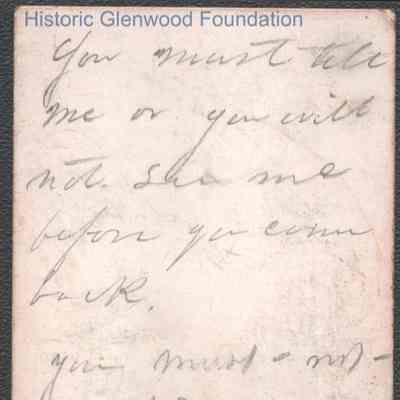 Historic Glenwood Foundation
You must tell
me or you will
not. See me
before you come
back.
you must - not -